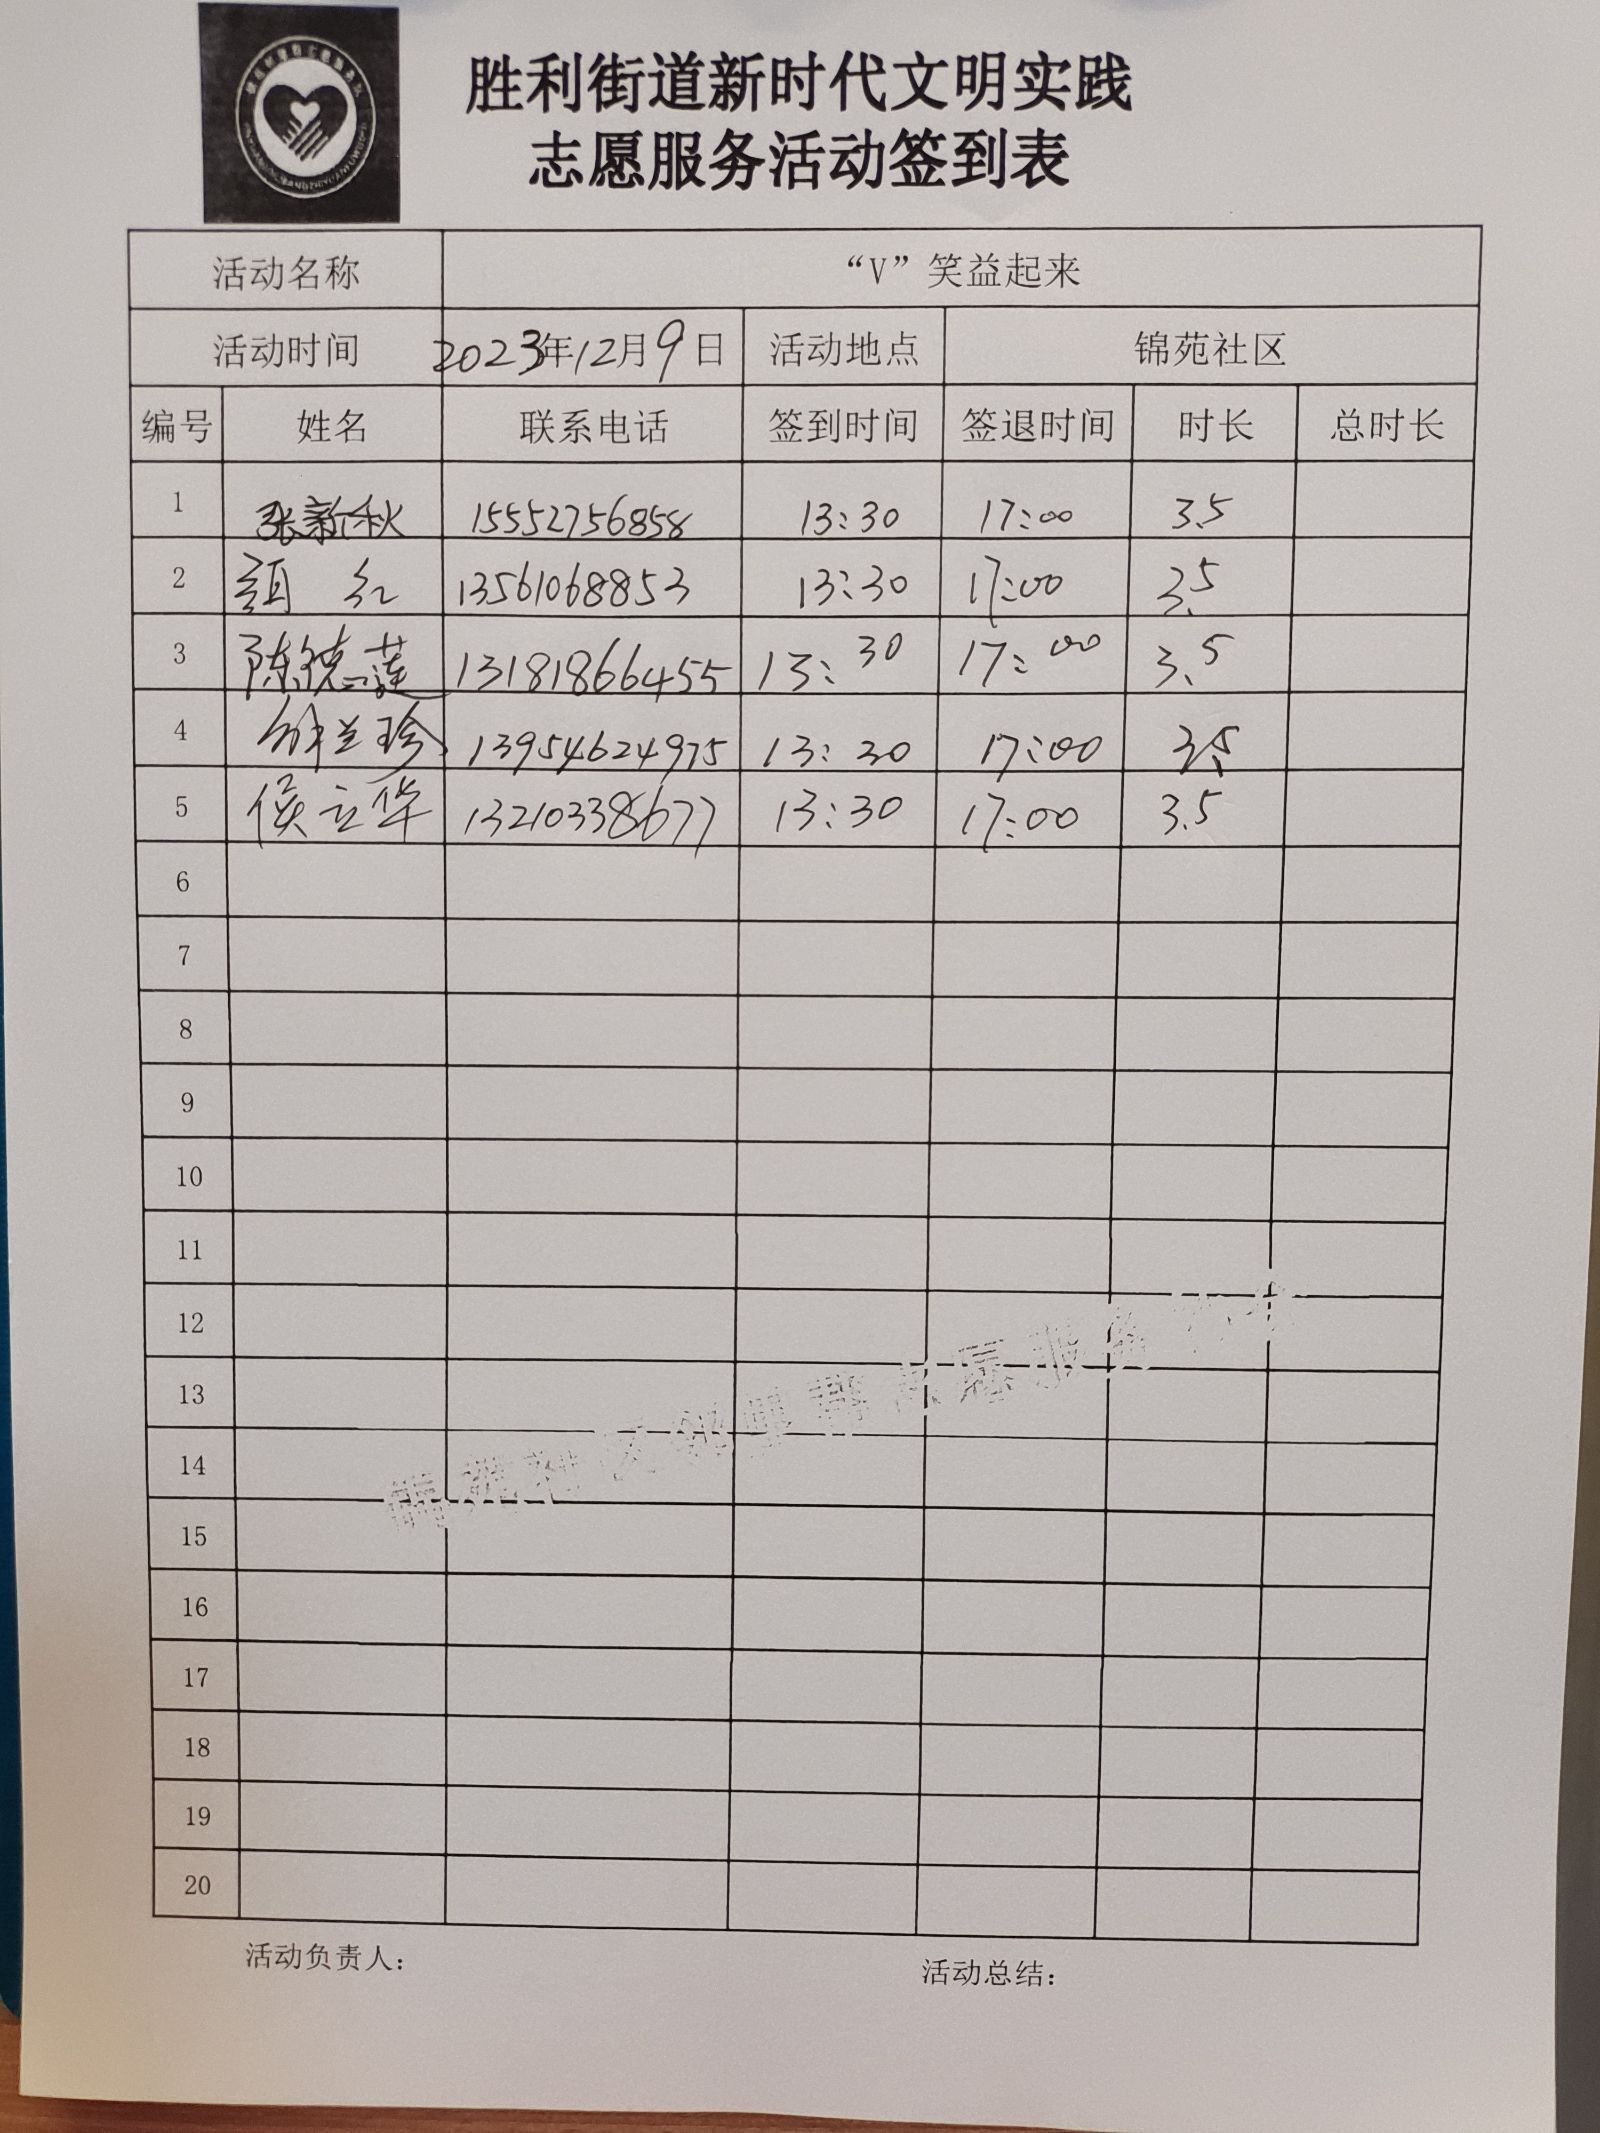 胜利街道新时代文明实践
志愿服务活动签到表
活动名称 “V”笑益起来
活动时间 2023年12月9日 活动地点 锦苑社区
编号 姓名 联系电话 签到时间 签退时间 时长 总时长
1 张新秋 15552756858 13:30 17:00 3.5
2 红 13561068853 13:30 17:00 3.5
3 陈德莲 13181866455 13:30 17:00 3.5
4 兰珍 13954624975 13:30 17:00 3.5
5 侯立华 13210338677 13:30 17:00 3.5
6
7
8
9
10
11
12
13
14
15
16
17
18
19
20
活动负责人: 活动总结: